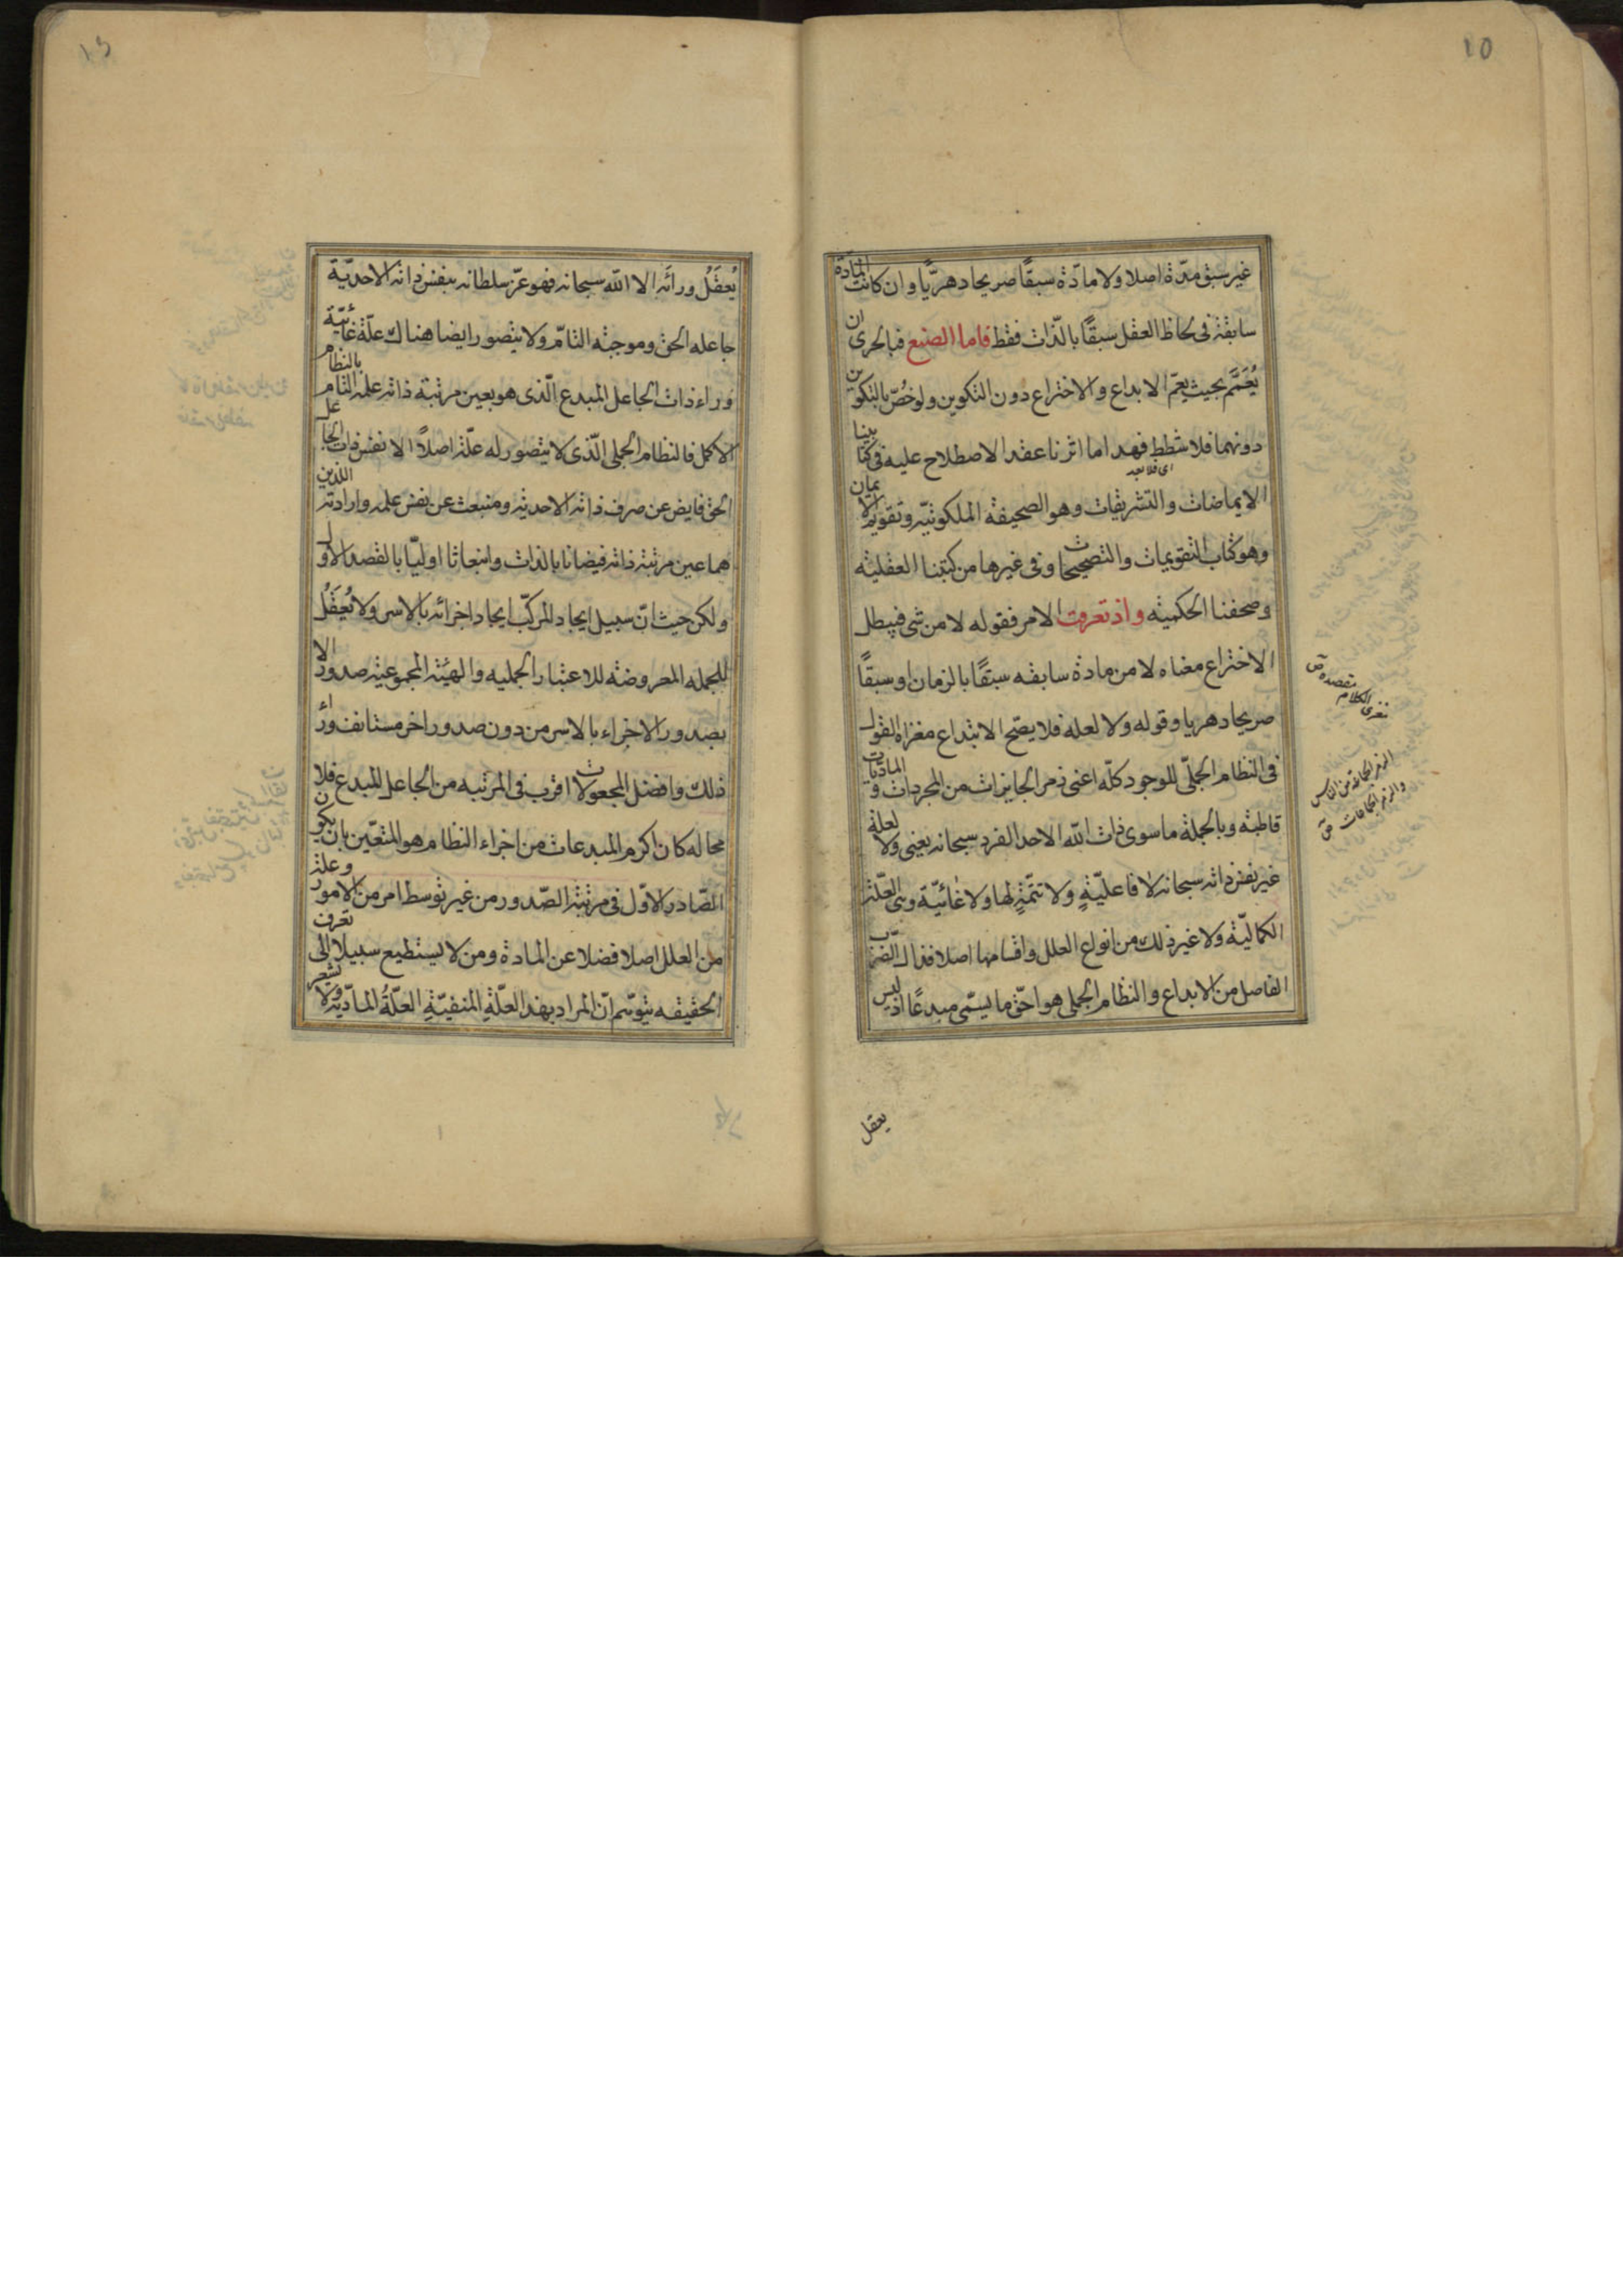 ١٥
غير سبق مدّة اصلا ولا مادّة سبقًا صريحا دهريًّا وان كانت المادّة
سابقة فى لحاظ العقل سبقًا بالذّات فقط فاما الصنع فبالحرى ان
يُعَمَّم بحيث يعمّ الابداع والاختراع دون التكوين ولو خُصّ بالتكوين
دونهما فلا شطط فهذا ما اثرنا عقد الاصطلاح عليه فى كتابينا
اى فلا بعد
الايماضات والتشريقات وهو الصحيفة الملكوتيّه وتقويم الايمان
وهو كتاب التقويمات والتصحيحات وفى غيرها من كتبنا العقليّة
وصحفنا الحكميّه واذ تعرفت الامر فقوله لا من شى فيبطل
الاختراع معناه لا من مادة سابقه سبقًا بالزمان او سبقًا
صريحا دهريا وقوله ولا لعلة فلا يصّح الابتداع مغزاه القول
فى النظام الجملّى للوجود كلّه اعنى زمر الجايزات من المجردات والماديات
قاطبة وبالجملة ما سوى ذات الله الاحد الفرد سبحانه يعنى ولا لعلة
غير نفس ذاته سبحانه لا فاعليّةٍ ولا تتمّةٍ لها ولا غائيّة وهى العّلة
الكماليّة ولا غير ذلك من انواع العلل واقسامها اصلا فذاك الضرب
الفاصل من الابداع والنظام الجملى هو احّق ما يسمّى مبدعًا اذ ليس
مغزى الكلام مقصده ق
يعقل
يُعقَلُ ورائه الا الله سبحانه فهو عزّ سلطانه بنفس ذاته الاحديّة
جاعله الحق وموجبه التامّ ولا يتصور ايضا هناك علّة غائيّة
وراء ذات الجاعل المبدع الّذى هو بعين مرتبة ذاته علمه التام بالنظام
الاكمل فالنظام الجملى الّذى لا يتصور له علّة اصلاً الا نفس ذات الجاعل
الحق فايض عن صرف ذاته الاحدية ومنبعث عن نفس علمه وارادته اللذين
هما عين مرتبة ذاته فيضانا بالذات وانبعاثا اوليّا بالقصد الاول
ولكن حيث انّ سبيل ايجاد المركّب ايجاد اجزائه بالاسر ولا يُعقَلُ
للجمله المعروضة للاعتبار الجمليه والهيئة المجموعية صدور الا
بصدور الاجزاء بالاسر من دون صدور اخر مستانف وراء
ذلك وافضل المجعولات اقرب فى المرتبه من الجاعل المبدع فلا
محاله كان اكرم المبدعات من اجزاء النظام هو المتعيّن بان يكون
الصّادر الاوّل فى مرتبة الصّدور من غير توسط امر من الامور وعلة
من العلل اصلا فضلا عن المادة ومن لا يستطيع سبيلا الى تعرف
الحقيقه يتوهّم انّ المراد بهذا العلّةِ المنفيّةِ العلّةُ المادّيّة ولا يشعر